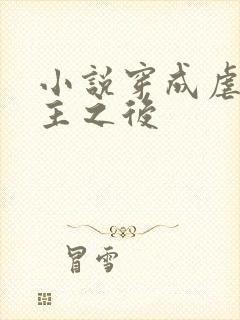 小說穿成虐
主之後
冒雪